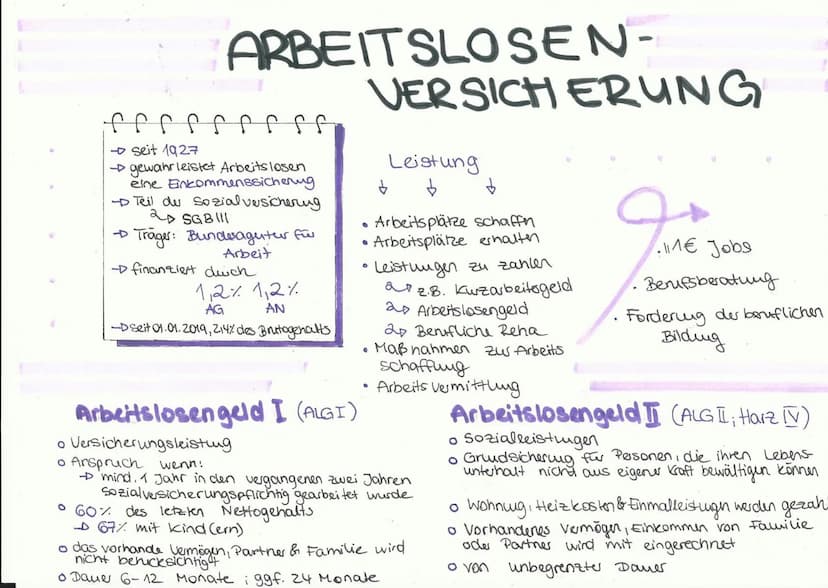 ARBEITSLOSEN-
VERSICHERUNG
→ seit 1927
→ gewährleistet Arbeitslosen
eine Einkommenssicherung
→ Teil der Sozialversicherung
↳ SGB III
→ Träger: Bundesagutur für
Arbeit
→ finanziert durch
1,2% 1,2%
AG AN
→ seit 01.01.2019, 2,4% des Bruttogehalts
Leistung
• Arbeitsplätze schaffn
• Arbeitsplätze erhalten
• Leistungen zu zahlen
↳ z.B. Kurzarbeitsgeld
↳ Arbeitslosengeld
↳ Berufliche Reha
• Maßnahmen zur Arbeits
schaffung
• Arbeitsvermittlung
• "1€ Jobs
• Berufsberatung
• Förderung der beruflichen
Bildung
Arbeitslosengeld I (ALG I)
o Versicherungsleistung
o Anspruch wenn:
→ mind. 1 Jahr in den vergangenen zwei Jahren
sozialversicherungspflichtig gearbeitet wurde
o 60% des letzten Nettogehalts
→ 67% mit Kind(ern)
o das vorhande Vermögen, Partner & Familie wird
nicht berücksichtigt
o Dauer 6-12 Monate; ggf. 24 Monate
Arbeitslosengeld II (ALG II; Harz IV)
o Sozialleistungen
o Grundsicherung für Personen, die ihren Lebens
unterhalt nicht aus eigener Kraft bewältigen können
o Wohnung, Heizkosten & Einmalleistugen werden gezah
o Vorhandenes Vermögen, Einkommen von Familie
oder Partner wird mit eingerechnet
o von unbegrenzter Dauer